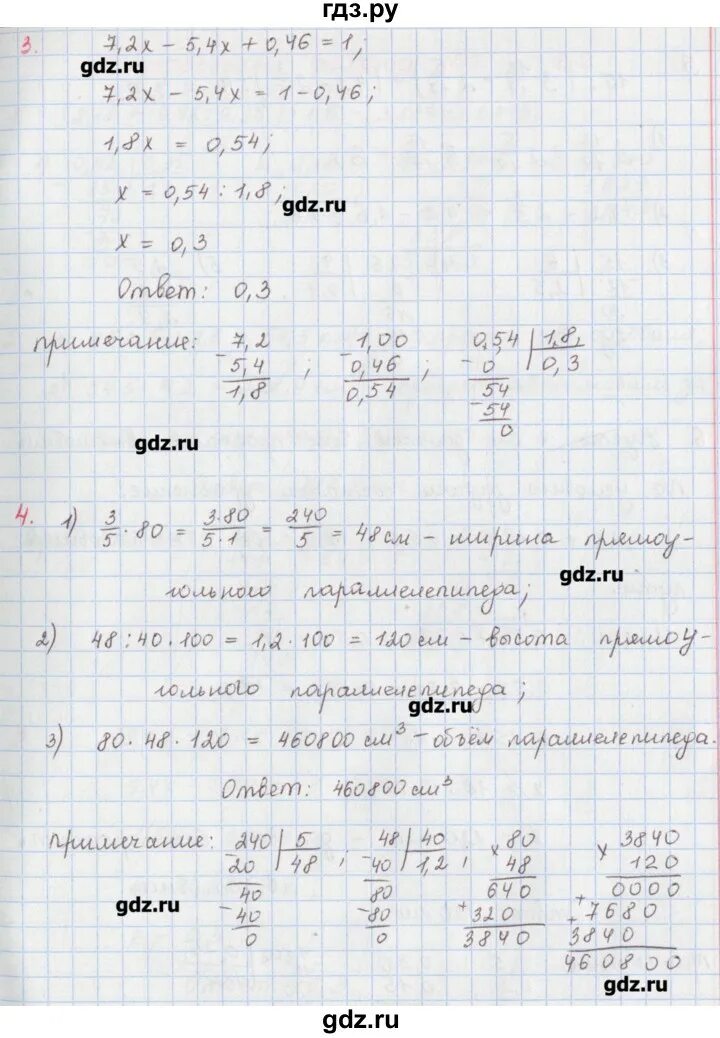 гдз.ру
3. 7,2x − 5,4x + 0,46 = 1;
gdz.ru
7,2x − 5,4x = 1 − 0,46;
1,8x = 0,54;
x = 0,54 : 1,8;
gdz.ru
x = 0,3
Ответ: 0,3
примечание: 7,2 1,00 0,54 | 1,8
− 5,4 ; − 0,46 ; − 0 0,3
1,8 0,54 54
− 54
gdz.ru 0
4. 1) 3/5 · 80 = 3·80/5·1 = 240/5 = 48 см − ширина прямоу-
gdz.ru
гольного параллелепипеда;
2) 48 : 40 · 100 = 1,2 · 100 = 120 см − высота прямоу-
гольного параллелепипеда;
gdz.ru
3) 80 · 48 · 120 = 460800 см³ − объём параллелепипеда.
Ответ: 460800 см³
примечание: 240 | 5 ; 48 | 40 ; × 80 × 3840
− 20 48 − 40 1,2 48 120
40 80 640 0000
gdz.ru − 40 − 80 + 320 + 7680
0 0 3840 + 3840
460800
gdz.ru
gdz.ru